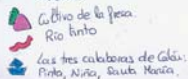 Cultivo de la fresa.
Río tinto
Las tres calaboras de Colón:
Pinta, Niña, Santa María.